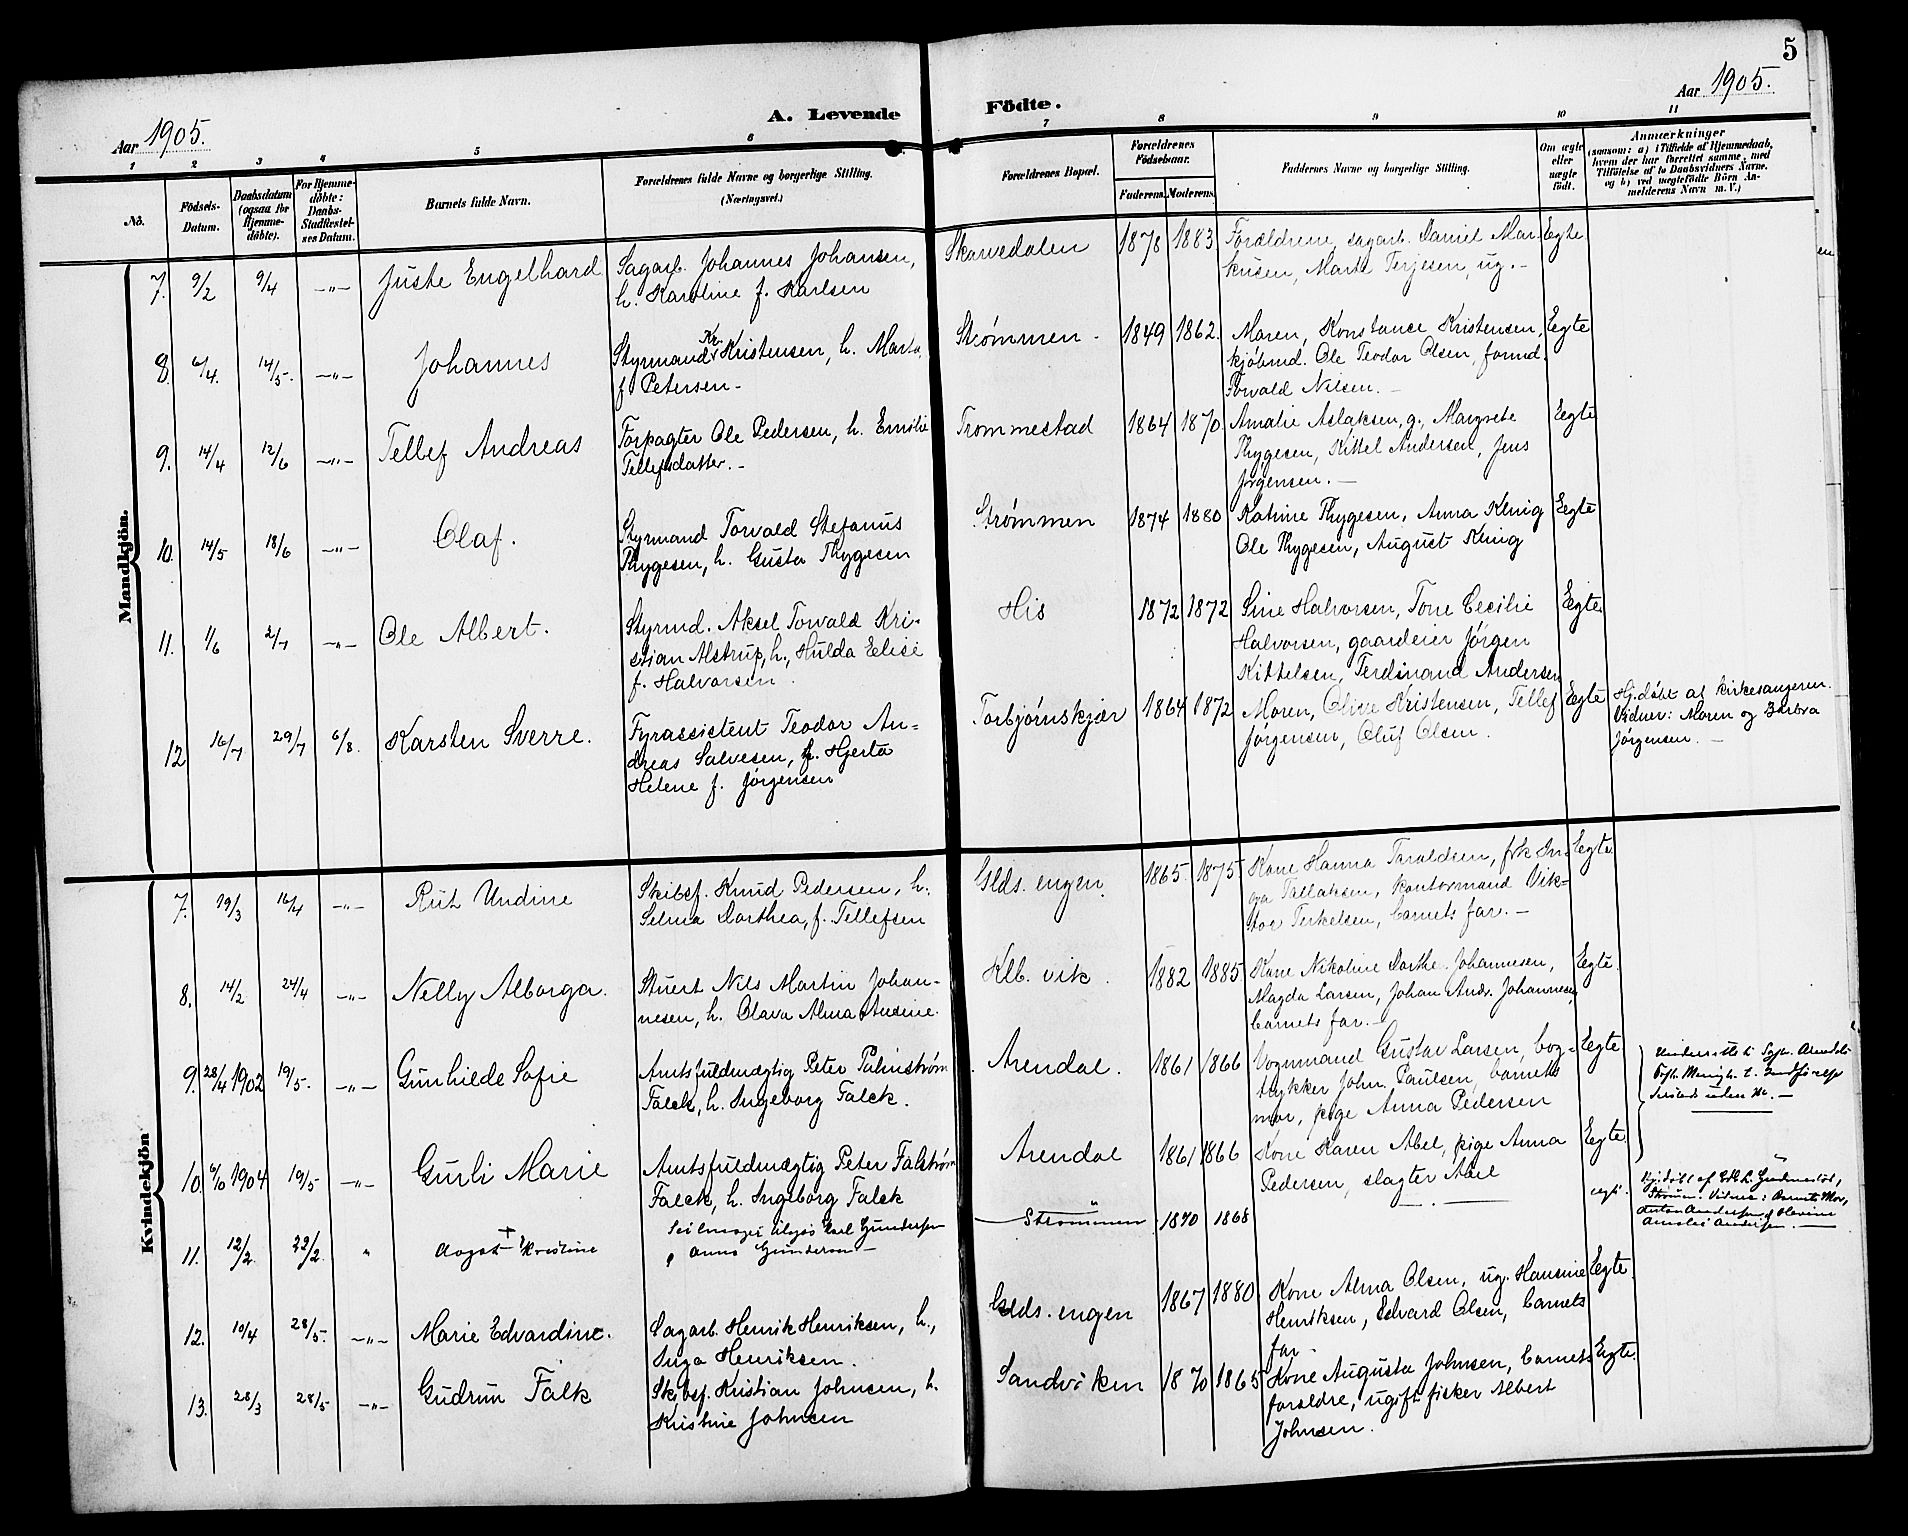 5
Aar 1905.
A. Levende Födte.
Aar 1905.
1 2 3 4 5 6 7 8 9 10 11
No.
Födsels-
Datum.
Daabsdatum
(ogsaa for
Hjemme-
döbte).
For Hjemme-
döbte:
Daabs-
Stadfæstel-
ses Datum.
Barnets fulde Navn.
Forældrenes fulde Navne og borgerlige Stilling.
(Næringsvei.)
Forældrenes Bopæl.
Forældrenes
Födselsaar.
Faderens. Moderens.
Faddernes Navne og borgerlige Stilling.
Om ægte
eller
uægte
födt.
Anmærkninger
(saasom: a) i Tilfælde af Hjemmedaab,
hvem der har forrettet samme, med
Tilföielse af to Daabsvidners Navne,
og b) ved uægtefödte Börn An-
melderens Navn m. V.)
Mandkjön.
7. 9/2 9/4 -"- Juste Engelhard
Sagarb. Johannes Johansen,
h. Karoline f. Karlsen
Skarvedalen 1878 1883
Forældrene, sagarb. Daniel Mar-
kusen, Marte Terjesen, ug. -
Ægte
8. 6/4. 14/5. -"- Johannes
Kr.
Styrmand Kristensen, h. Marta
f. Petersen -
Strømmen - 1849 1862.
Maren, Konstance Kristensen,
kjøbmd. Ole Teodor Olsen, formd.
Torvald Nilsen. -
Ægte
9. 14/4 12/6 -"- Tellef Andreas
Forpagter Ole Pedersen, h. Emilie
Tellefsdatter. -
Trommestad 1864 1870.
Amalie Aslaksen, g., Margrete
Thygesen, Kittel Andersen, Jens
Jørgensen. -
Ægte
10. 14/5 18/6 -"- Olaf.
Styrmand Torvald Stefanus
Thygesen, h. Gusta Thygesen
Strømmen 1874 1880
Katrine Thygesen, Anna König
Ole Thygesen, August König
Ægte
11. 1/6 2/7 -"- Ole Albert.
Styrmd. Aksel Torvald Kri-
stian Alstrup, h., Hulda Eelise
f. Halvorsen.
His 1872 1872
Sine Halvorsen, Tone Cecilie
Halvorsen, gaardeier Jørgen
Kittelsen, Ferdinand Andersen
Ægte.
12 16/7 29/7 6/8. Karsten Sverre.
Fyrassistent Teodor An-
dreas Salvesen, h. Hjerta
Helene f. Jørgensen
Torbjørnskjær 1864 1872
Maren, Olive Kristensen, Tellef
Jørgensen, Oluf Olsen.
Ægte
Hj.døbt af kirkesangeren.
Vidner: Maren og Barbra
Jørgensen. -
Kvindekjön
7. 19/3 16/4 -"- Rut Undine
Skibsf. Knud Pedersen, h.
Selma Dorthea, f. Tellefsen
Glds. engen. 1865. 1875
Kone Hanna Taraldsen, frk In-
ga Tallaksen, kontormand Vik-
tor Terkelsen, barnets far. -
Ægte
8. 14/2 24/4 -"- Nelly Alborga.
Stuert Nils Martin Johan-
nesen, h. Olava Alma Andine.
Klb. vik. 1882 1885
Kone Nikoline Dorthe Johannesen,
Magda Larsen, Johan Andr. Johannesen
barnets far. -
Ægte.
9. 28/4 1902 19/5. -"- Gunhilde Sofie
Amtsfuldmægtig Peter Palmstrøm
Falck, h. Ingeborg Falck.
Arendal. 1861 1866
Vognmand Gustav Larsen, bog-
trykker John Paulsen, barnets
mor, pige Anna Pedersen
Ægte
10. 6/10 1904 19/5 -"- Gurli Marie
Amtsfuldmægtig Peter Falstrøm
Falck, h. Ingeborg Falck
Arendal 1861 1866
Kone Karen Abel, pige Anna
Pedersen, slagter Abel
Ægte.
11. 12/2. 22/2. " Aagot + Kristine
Karl Gundersen
Anna Gundersen -
Strømmen 1870 1868
ægte.
Hj.døbt af
Strømm. Vidner: Barnets Mor,
Anton Andersen
Andersen. -
12. 10/4 28/5. -"- Marie Edvardine.
Sagarb. Henrik Henriksen, h.,
Inga Henriksen.
Glds. engen 1867 1880
Kone Alma Olsen, ug. Hansine
Henriksen, Edvard Olsen, barnets
far -
Ægte.
13. 28/3 28/5 -"- Gudrun Falk
Skibsf. Kristian Johnsen, h.
Kristine Johnsen
Sandviken 1870 1865
Kone Augusta Johnsen, barnets
foraldre, ugift fisker Albert
Johnsen.
Ægte.